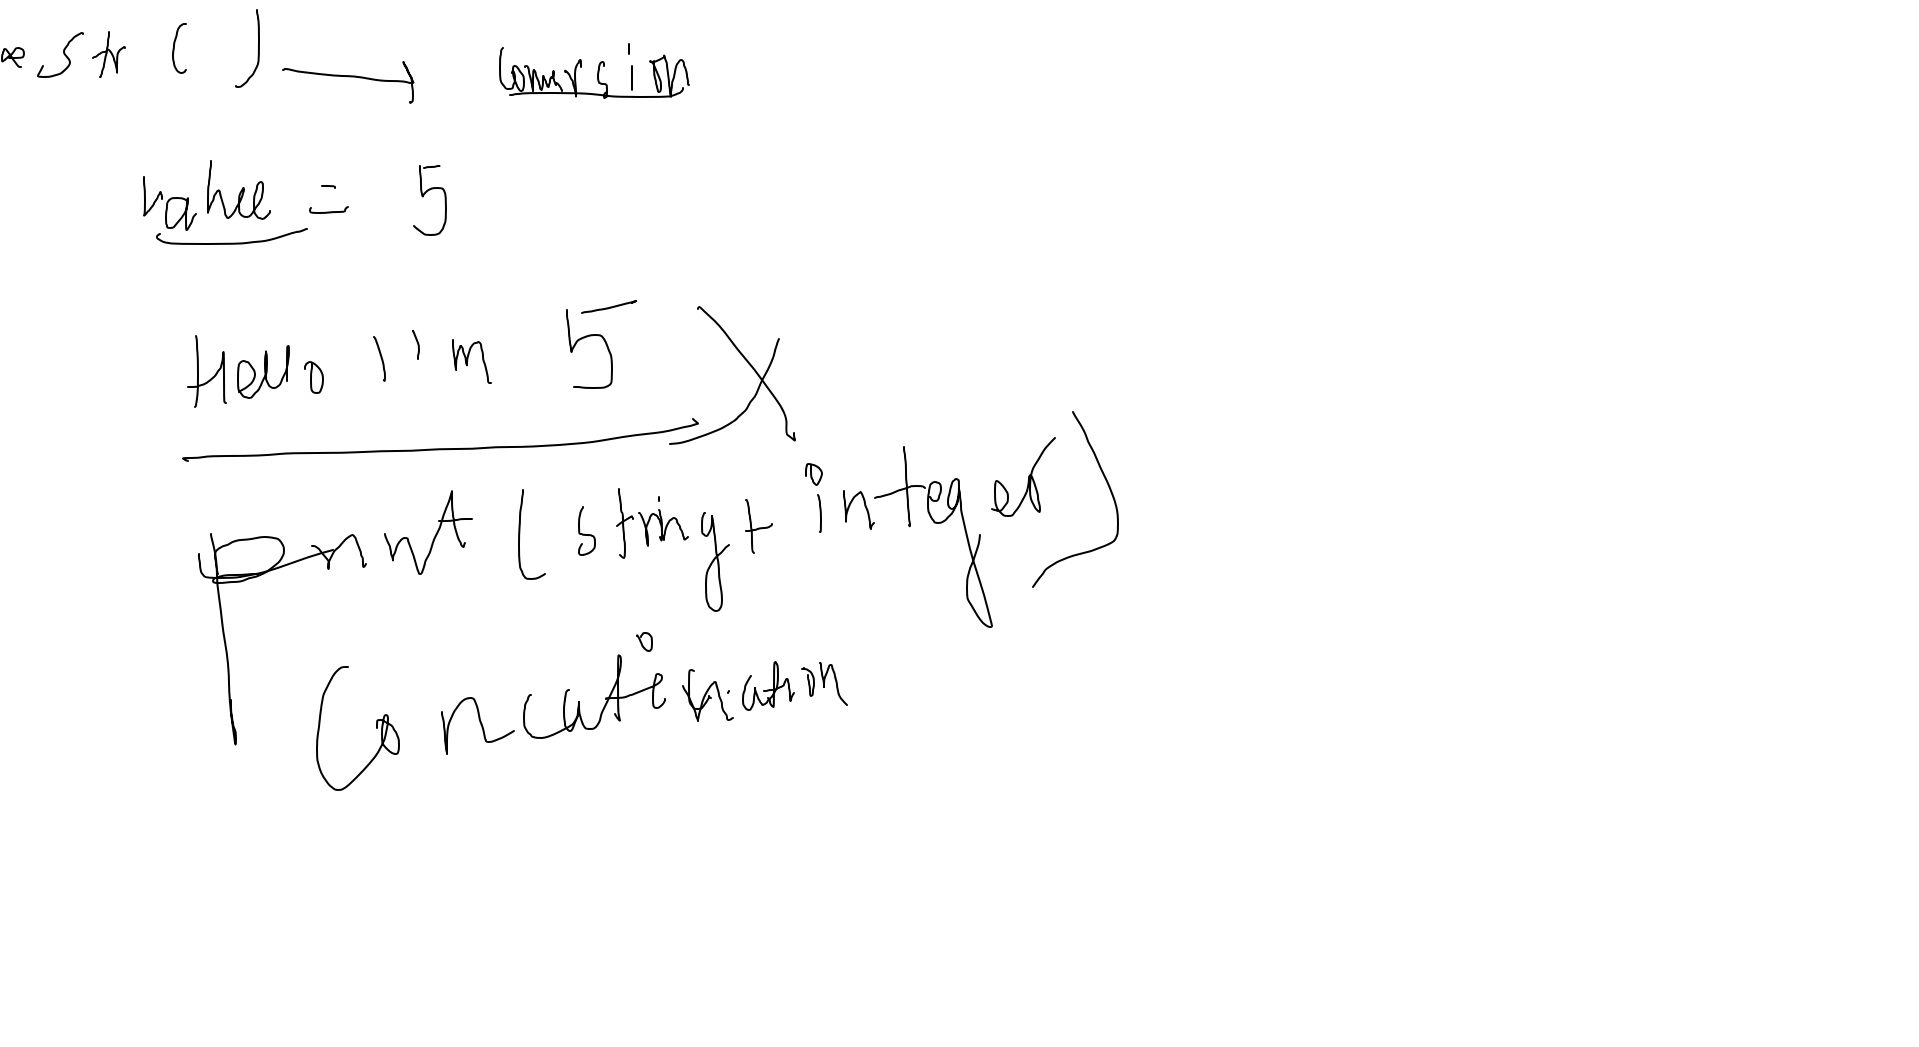 * str ( ) → Conversion
value = 5
Hello I'm 5
print (string + integer)
Concatination